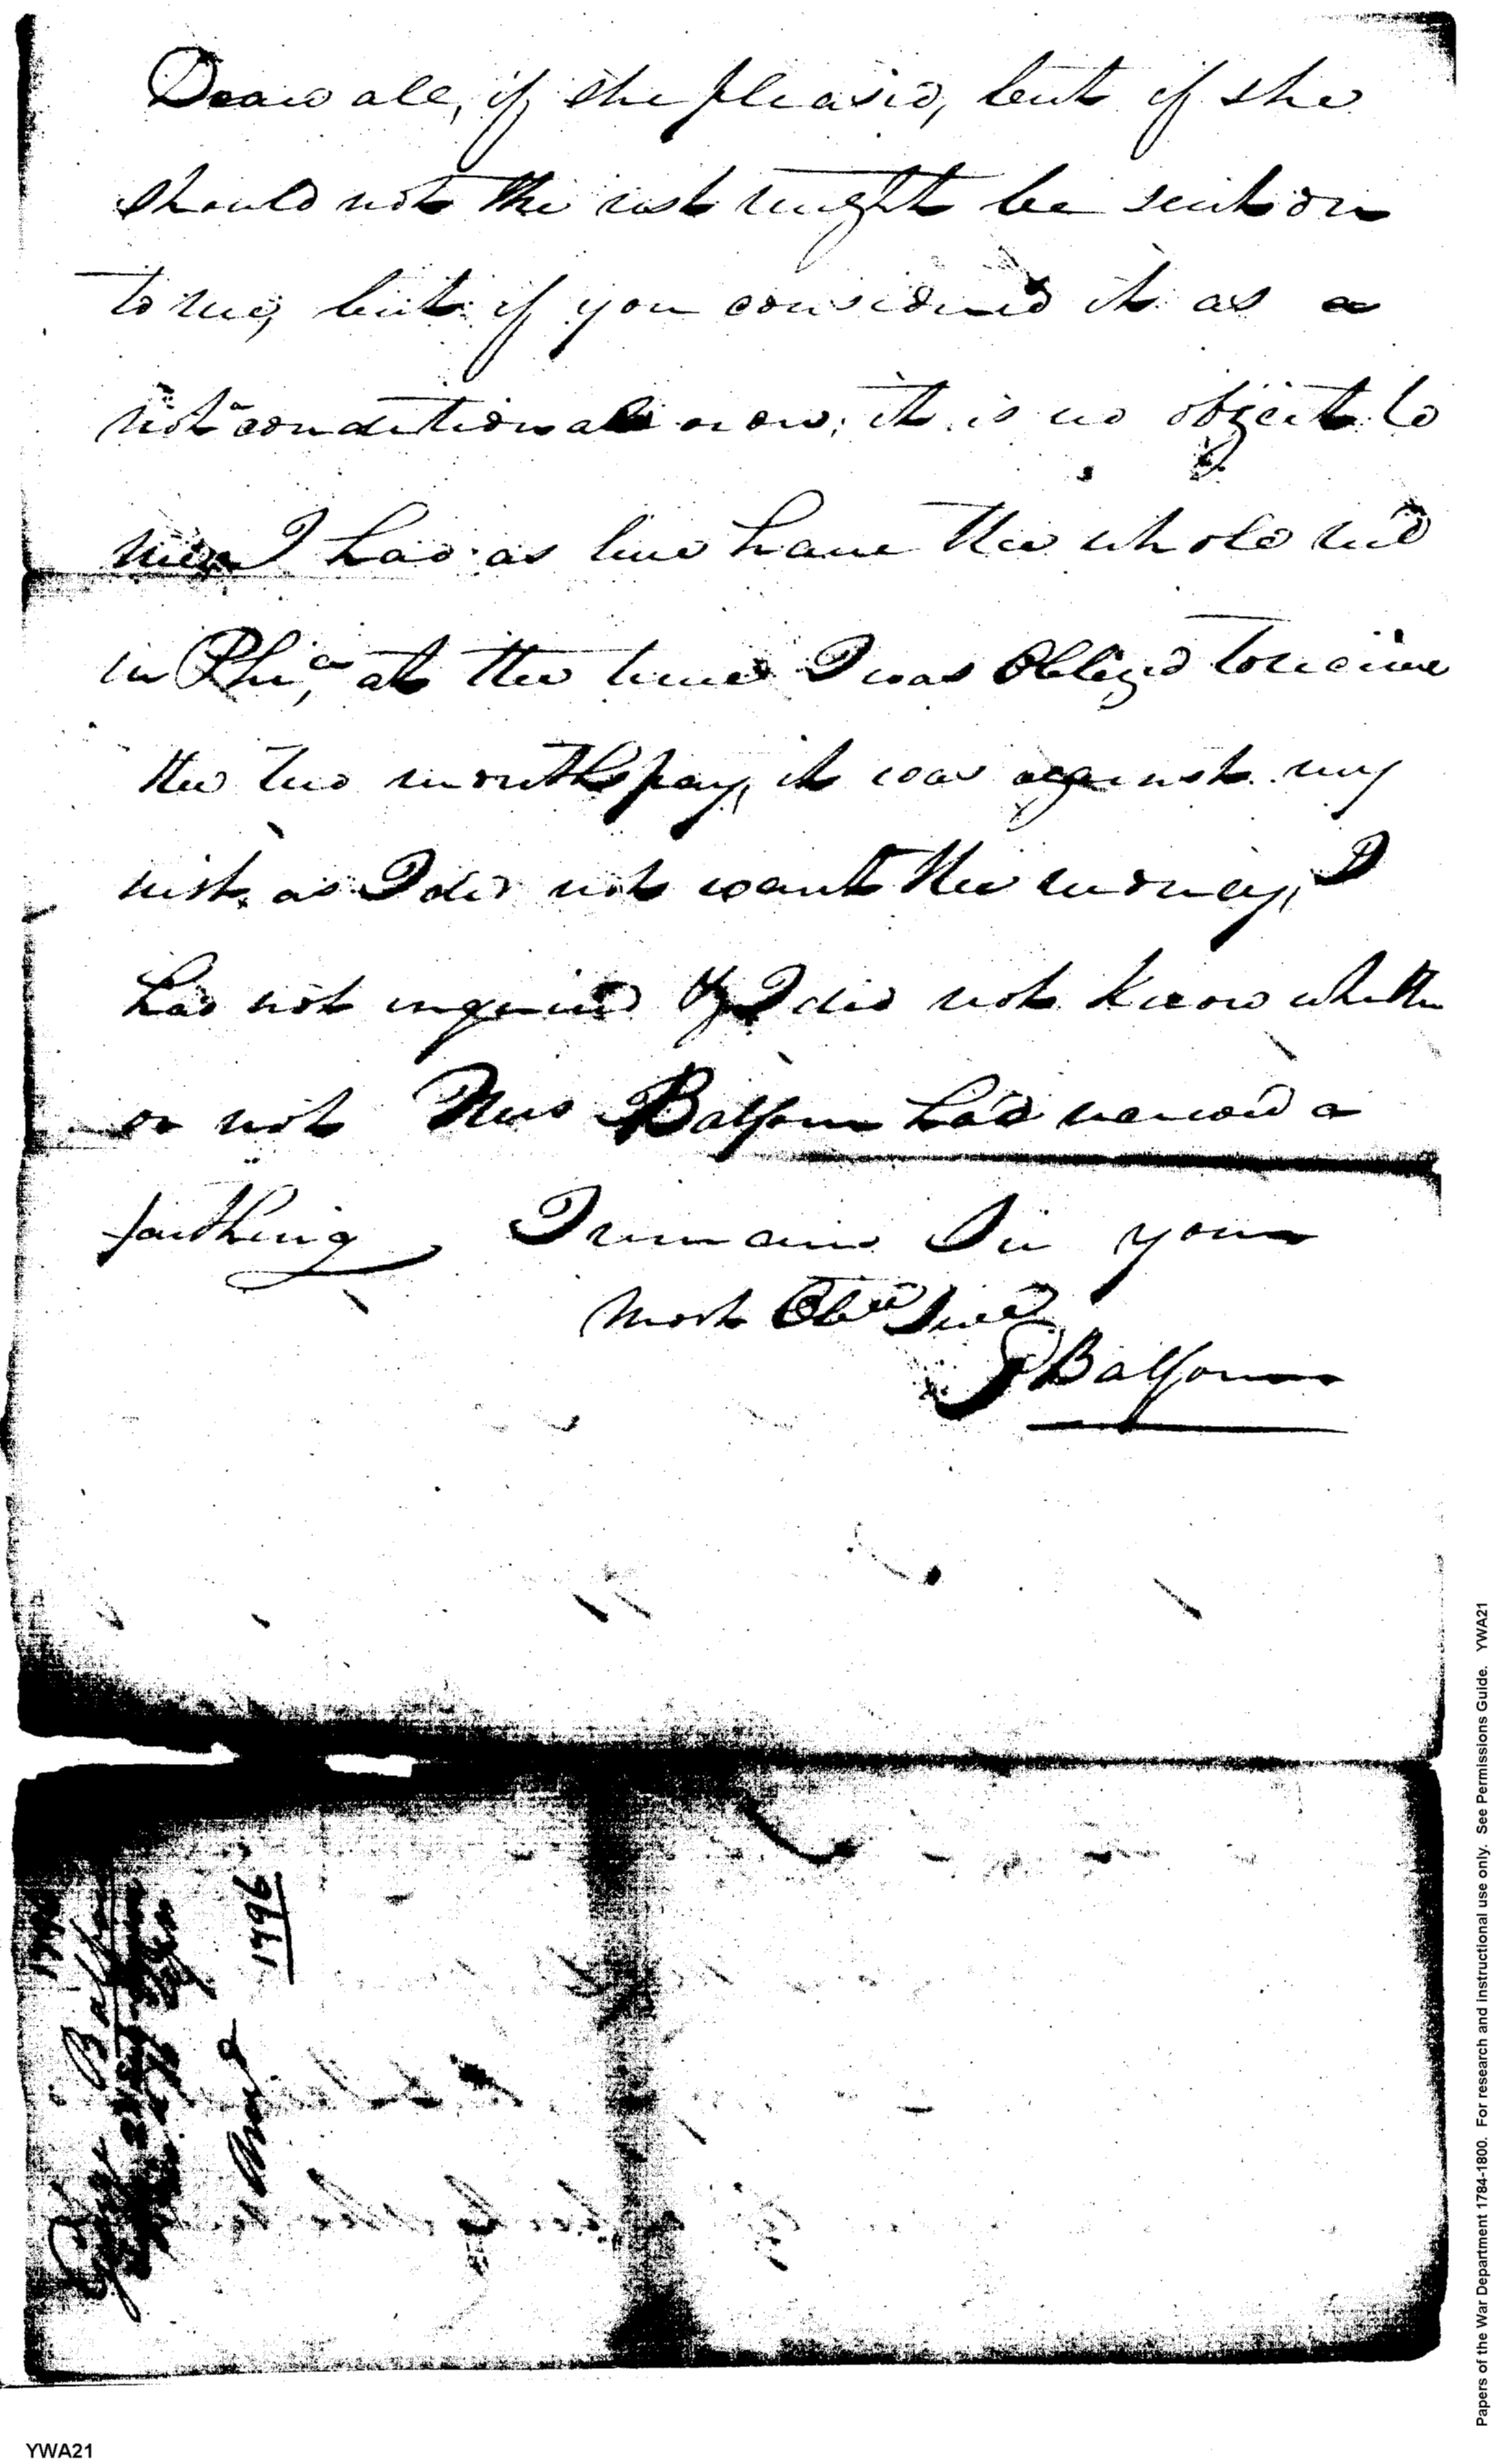 Draw all, if she pleased, but if she
should not the rest might be sent on
to me, but if you considered it as a
not conditional now; it is no object to
me I had as live have the whole rec'd
in Phi.a, at the time I was Obliged to receive
the two months pay, it was against my
wish, as I did not want the money, I
had not inquired & I did not know whether
or not Mrs Balfour had received a
farthing, I remain Sir your
Most Obt Servt
G Balfour
1796
Balfour
1796
Papers of the War Department 1784-1800. For research and instructional use only. See Permissions Guide. YWA21
YWA21